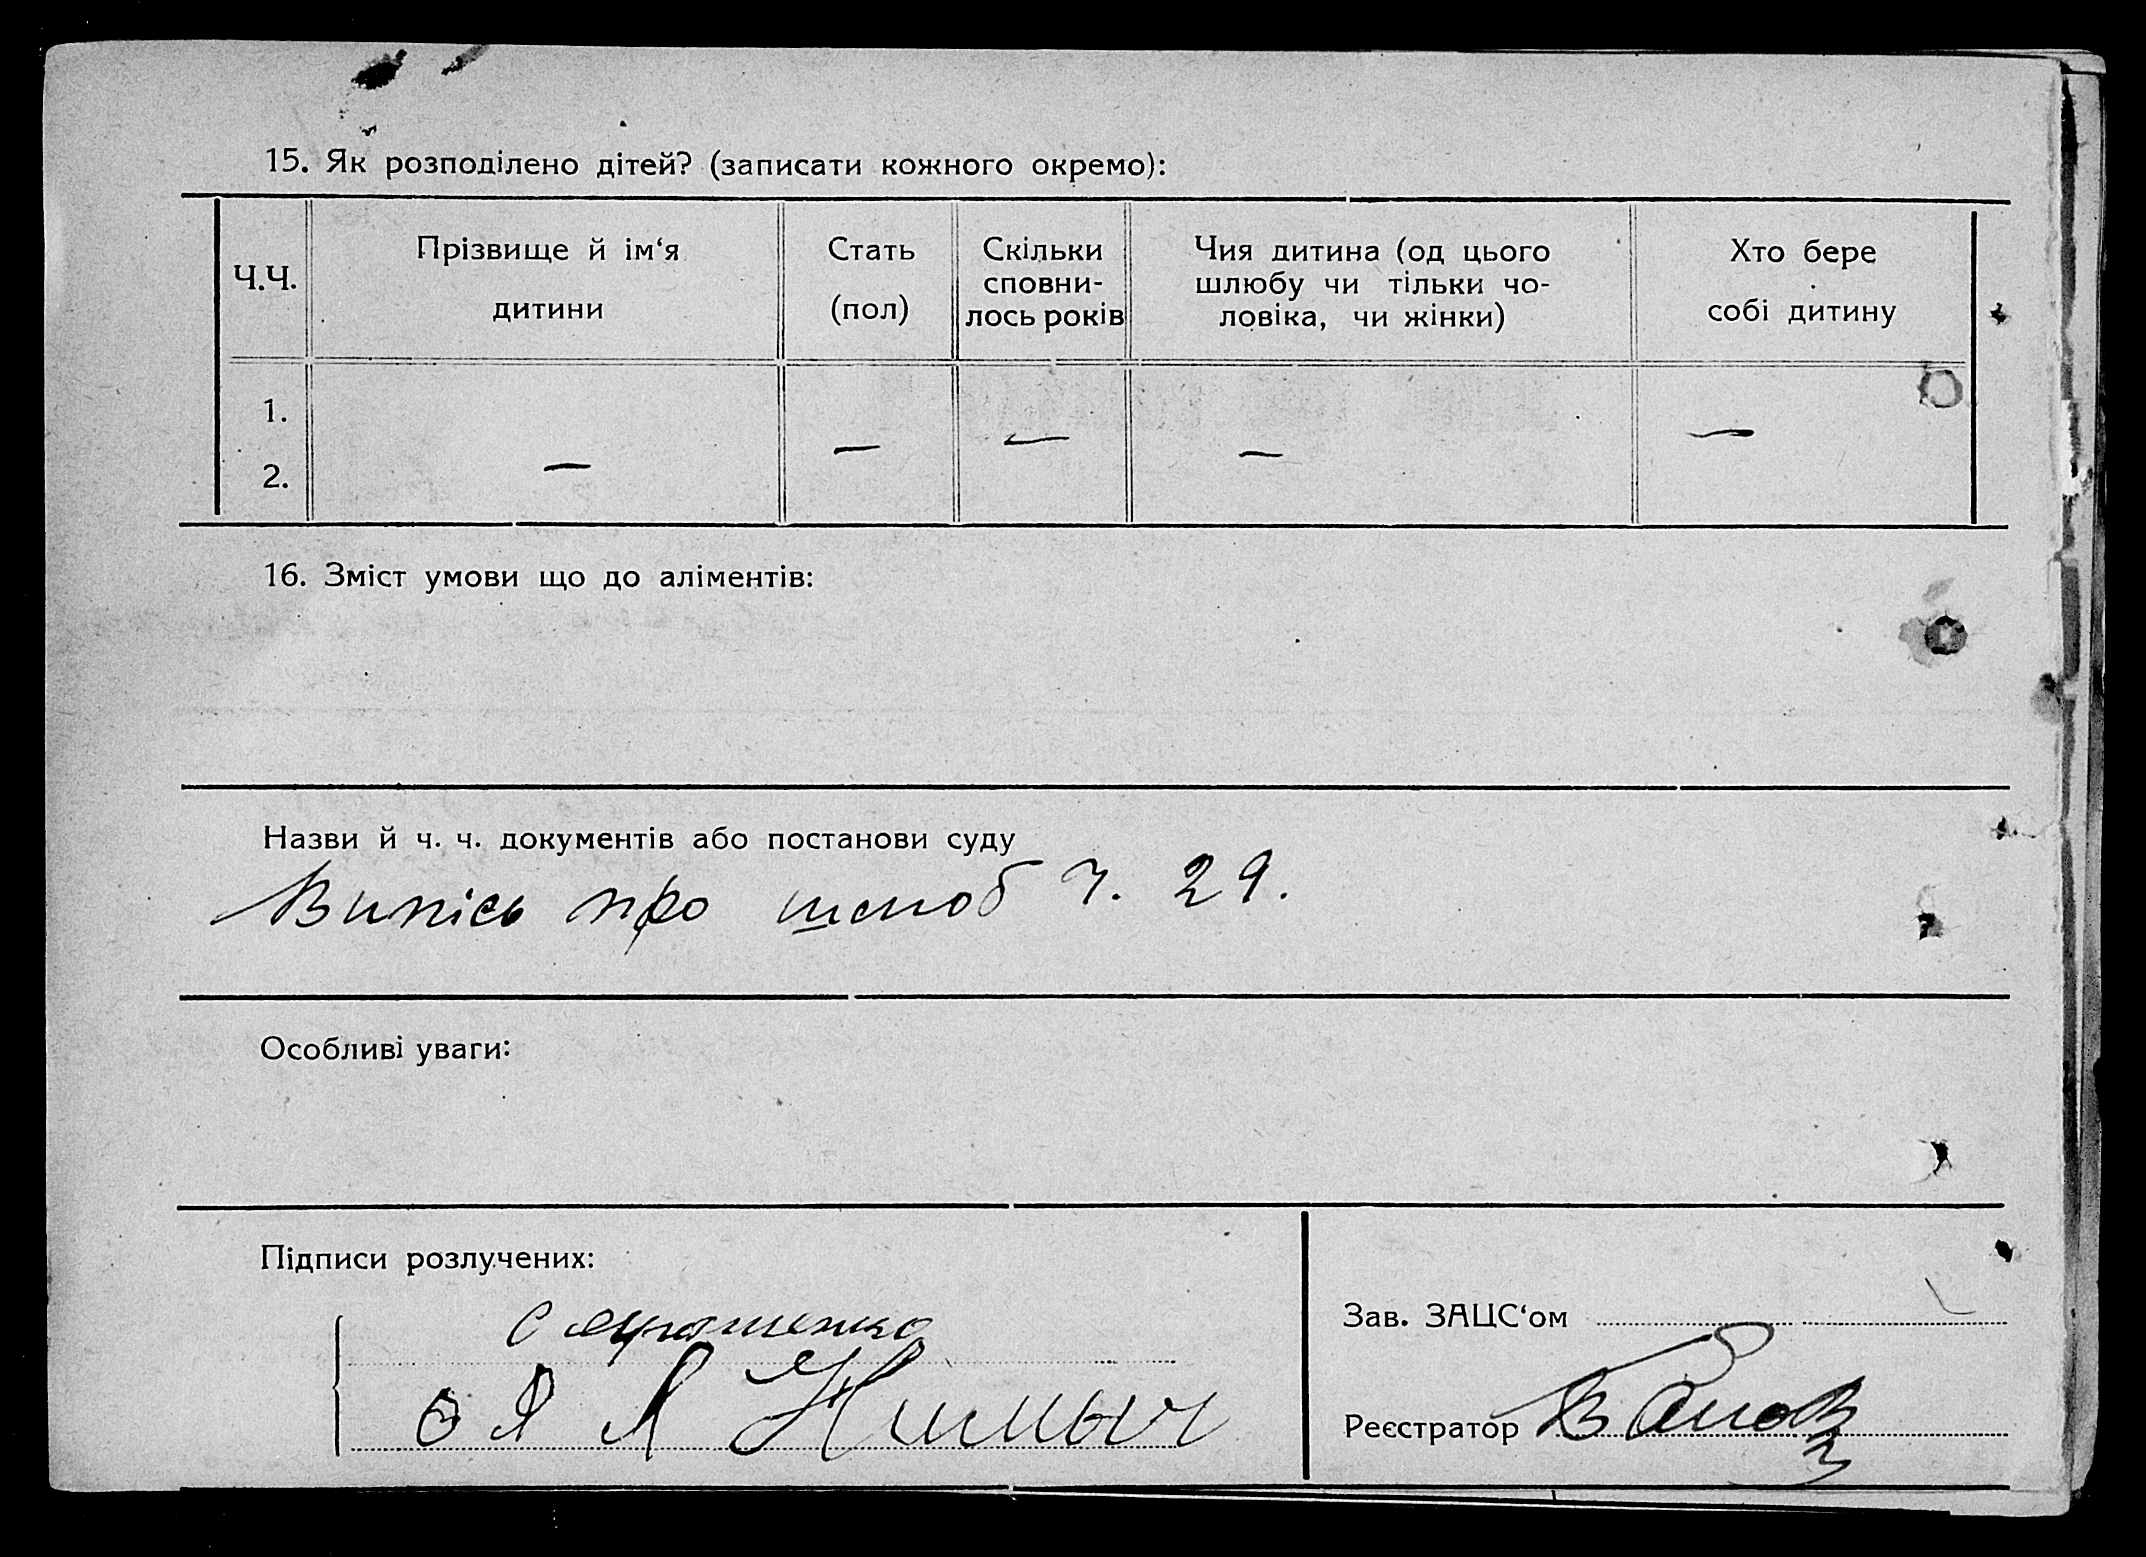 15. Як розподілено дітей? (записати кожного окремо):
Ч.Ч.
Прізвище й ім‘я
дитини
Стать
(пол)
Скільки
сповни-
лось років
Чия дитина (од цього
шлюбу чи тільки чо-
ловіка, чи жінки)
Хто бере
собі дитину
1.
2.
— — — — —
16. Зміст умови що до аліментів:
Назви й ч. ч. документів або постанови суду
Випісь про шлюб Ч. 29.
Особливі уваги:
Підписи розлучених:
Зав. ЗАЦС‘ом
Реєстратор